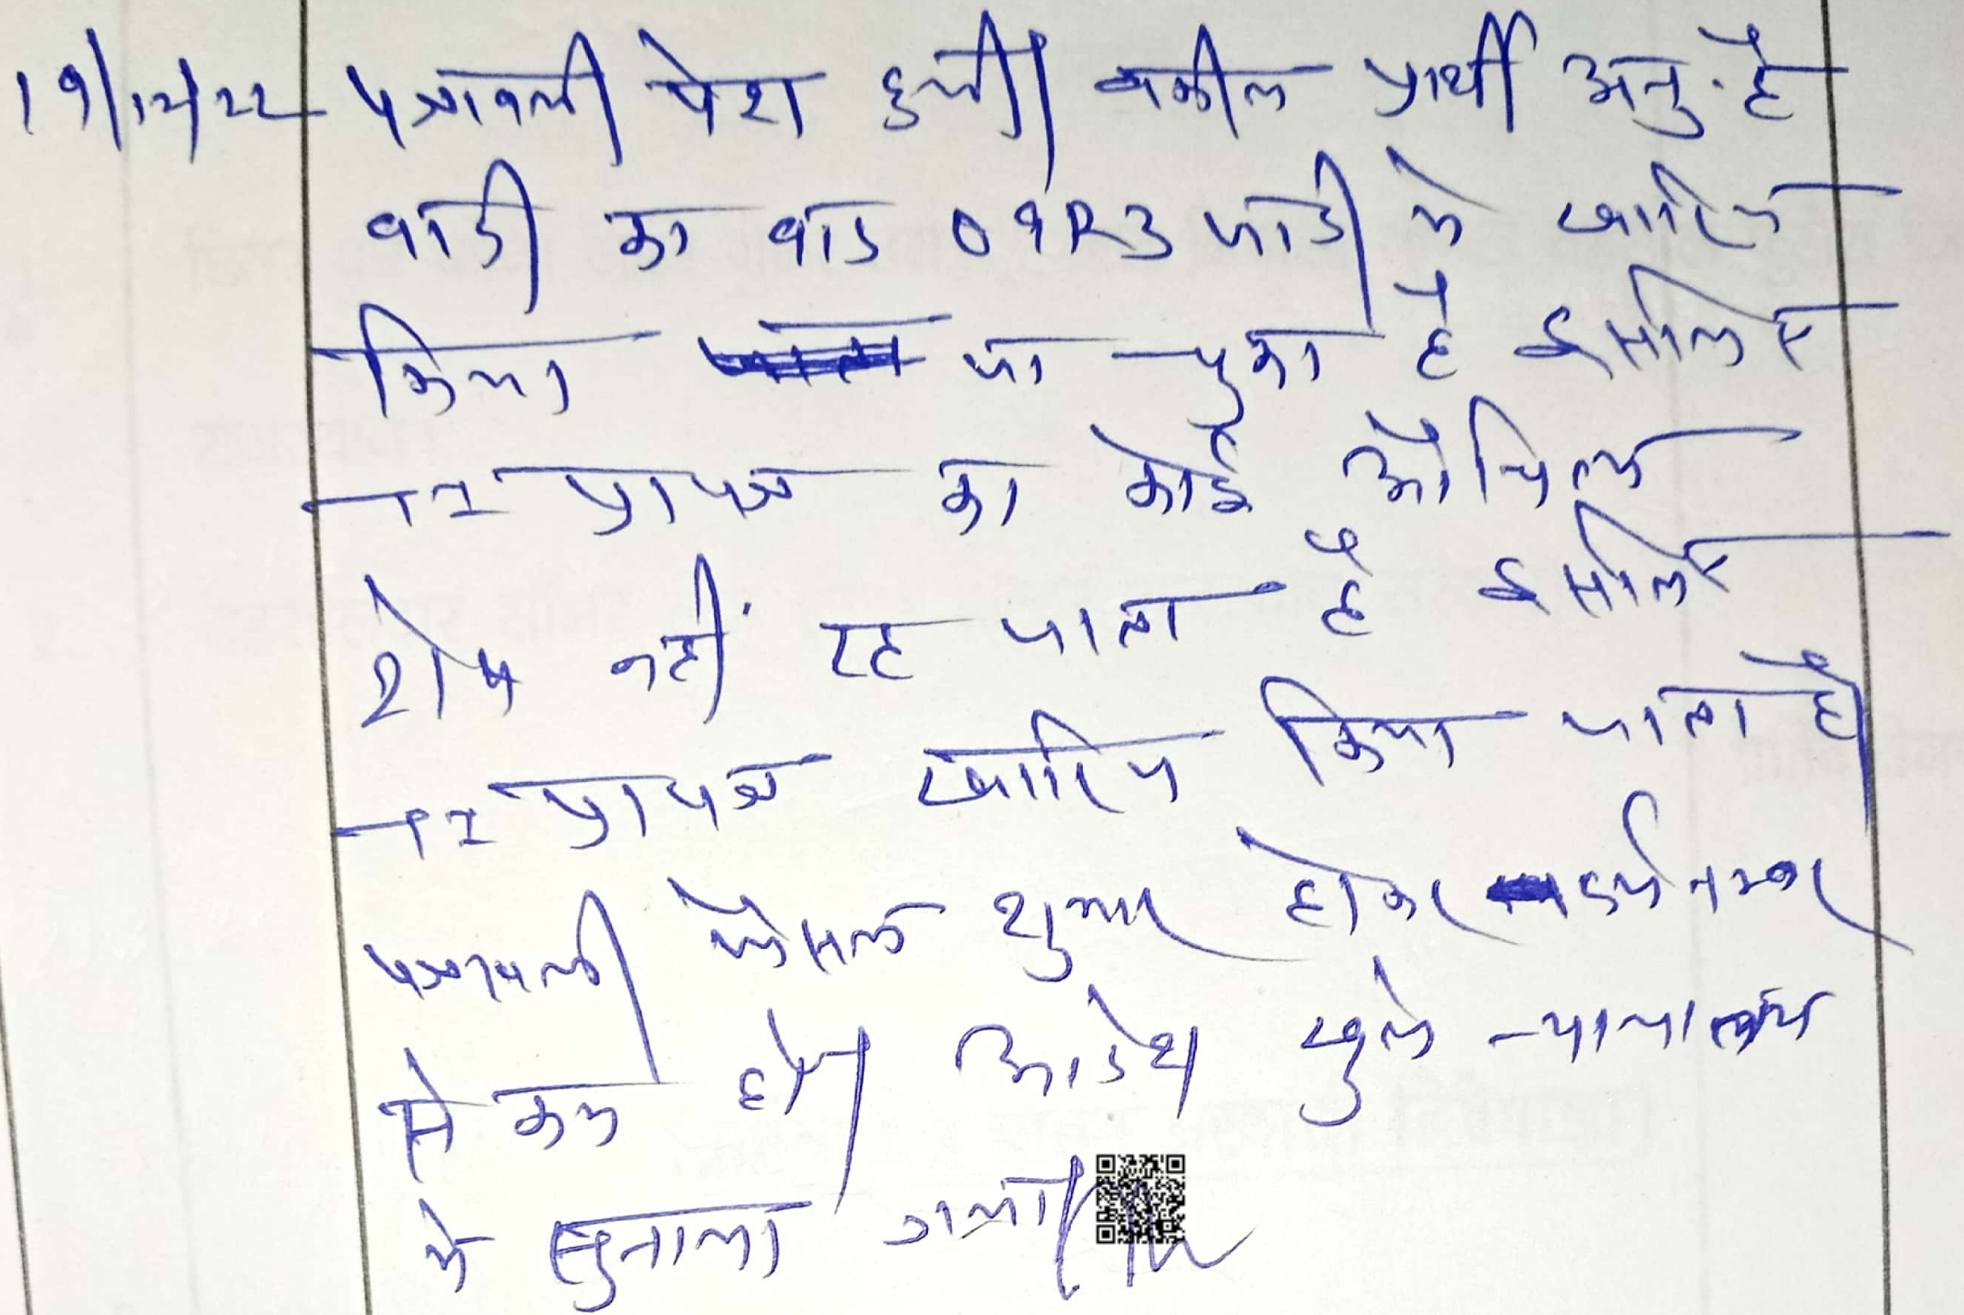 19/12/22 पत्रावली पेश हुयी। वकील प्रार्थी अनु. है
वादी का वाद 09R3 जादी मे खारिज
किया जा चुका है इसलिए
TI प्रा पत्र का कोई औचित्य
शेष नहीं रह जाता है इसलिए
TI प्रा पत्र खारिज किया जाता है।
पत्रावली फैसल शुमार होकर नम्बर
से कम हो। आदेश खुले न्यायालय
मे सुनाया गया।